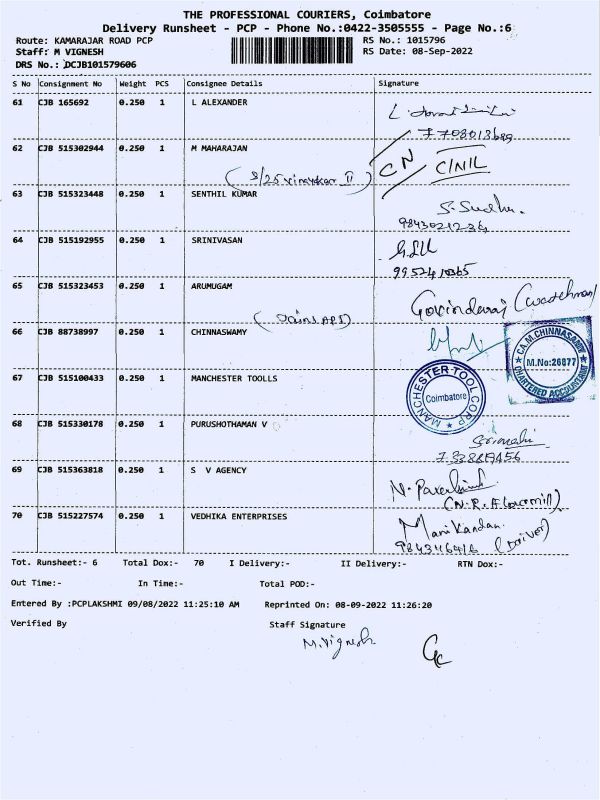 THE PROFESSIONAL COURIERS, Coimbatore
Delivery Runsheet - PCP - Phone No.:0422-3505555 - Page No.:6
Route: KAMARAJAR ROAD PCP RS No.: 1015796
Staff: M VIGNESH RS Date: 08-Sep-2022
DRS No.: DCJB101579606
S No Consignment No Weight PCS Consignee Details Signature
61 CJB 165692 0.250 1 L ALEXANDER
62 CJB 515302944 0.250 1 M MAHARAJAN CN C/NIL
63 CJB 515323448 0.250 1 SENTHIL KUMAR S. Sudha.
9843021234
64 CJB 515192955 0.250 1 SRINIVASAN
65 CJB 515323453 0.250 1 ARUMUGAM Govindaraj (watchman)
66 CJB 88738997 0.250 1 CHINNASWAMY
CA.M.CHINNASAMY M.No:26877 CHARTERED ACCOUNTANT
67 CJB 515100433 0.250 1 MANCHESTER TOOLLS MANCHESTER TOOL CORP Coimbatore
68 CJB 515330178 0.250 1 PURUSHOTHAMAN V
69 CJB 515363818 0.250 1 S V AGENCY
70 CJB 515227574 0.250 1 VEDHIKA ENTERPRISES Manikandan.
(Driver)
Tot. Runsheet:- 6 Total Dox:- 70 I Delivery:- II Delivery:- RTN Dox:-
Out Time:- In Time:- Total POD:-
Entered By :PCPLAKSHMI 09/08/2022 11:25:10 AM Reprinted On: 08-09-2022 11:26:20
Verified By Staff Signature
M.Vignesh